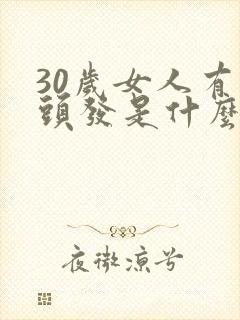 30歲女人有
頭發是什麼
夜微涼兮